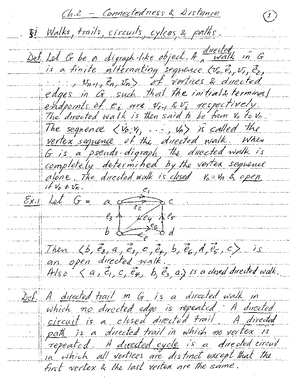 Ch.2 – Connectedness & Distance
①
§1 Walks, trails, circuits, cycles & paths.
Def. Let G be a digraph-like object. A directed walk in G
is a finite alternating sequence ⟨v₀, e₁, v₁, e₂,
..., vₙ₋₁, eₙ, vₙ⟩ of vertices & directed
edges in G such that the initial & terminal
endpoints of eᵢ are vᵢ₋₁ & vᵢ respectively.
The directed walk is then said to be from v₀ to vₙ.
The sequence ⟨v₀, v₁, ..., vₙ⟩ is called the
vertex sequence of the directed walk. When
G is a pseudo-digraph, the directed walk is
completely determined by the vertex sequence
alone. The directed walk is closed v₀ = vₙ & open
if v₀ ≠ vₙ.
Ex.1 Let G =
a
c
b
d
Then ⟨b, e₃, a, e₁, c, e₄, b, e₆, d, e₅, c⟩ is
an open directed walk.
Also ⟨a, e₁, c, e₄, b, e₃, a⟩ is a closed directed walk.
Def. A directed trail in G is a directed walk in
which no directed edge is repeated. A directed
circuit is a closed directed trail. A directed
path is a directed trail in which no vertex is
repeated. A directed cycle is a directed circuit
in which all vertices are distinct except that the
first vertex & the last vertex are the same.